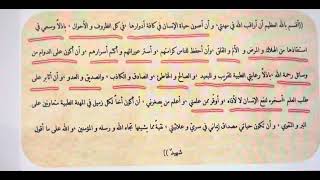 ((أقسم بالله العظيم أن أراقب الله في مهنتي، و أن أصون حياة الإنسان في كافة أدوارها في كل الظروف و الأحوال ، باذلاً وسعي في
استنقاذها من الهلاك و المرض و الألم و القلق ،وأن أحفظ للناس كرامتهم ، و أستر عوراتهم ،و أكتم أسرارهم ،و أن أكون على الدوام من
وسائل رحمة الله ،باذلاً رعايتي الطبية للقريب و البعيد ،والصالح و الخاطئ، و الصديق و العدو ،و أن أثابر على
طلب العلم أسخره لنفع الإنسان لا لأذاه ،و أوقر من علمني ،و أعلم من يصغرني، و أن أكون أخاً لكل زميل في المهنة الطبية متعاونين على
البر و التقوى ، و أن تكون حياتي مصداق إيماني في سري و علانيتي ، نقية مما يشينها تجاه الله و رسله و المؤمنين ، و الله على ما أقول
شهيد ))